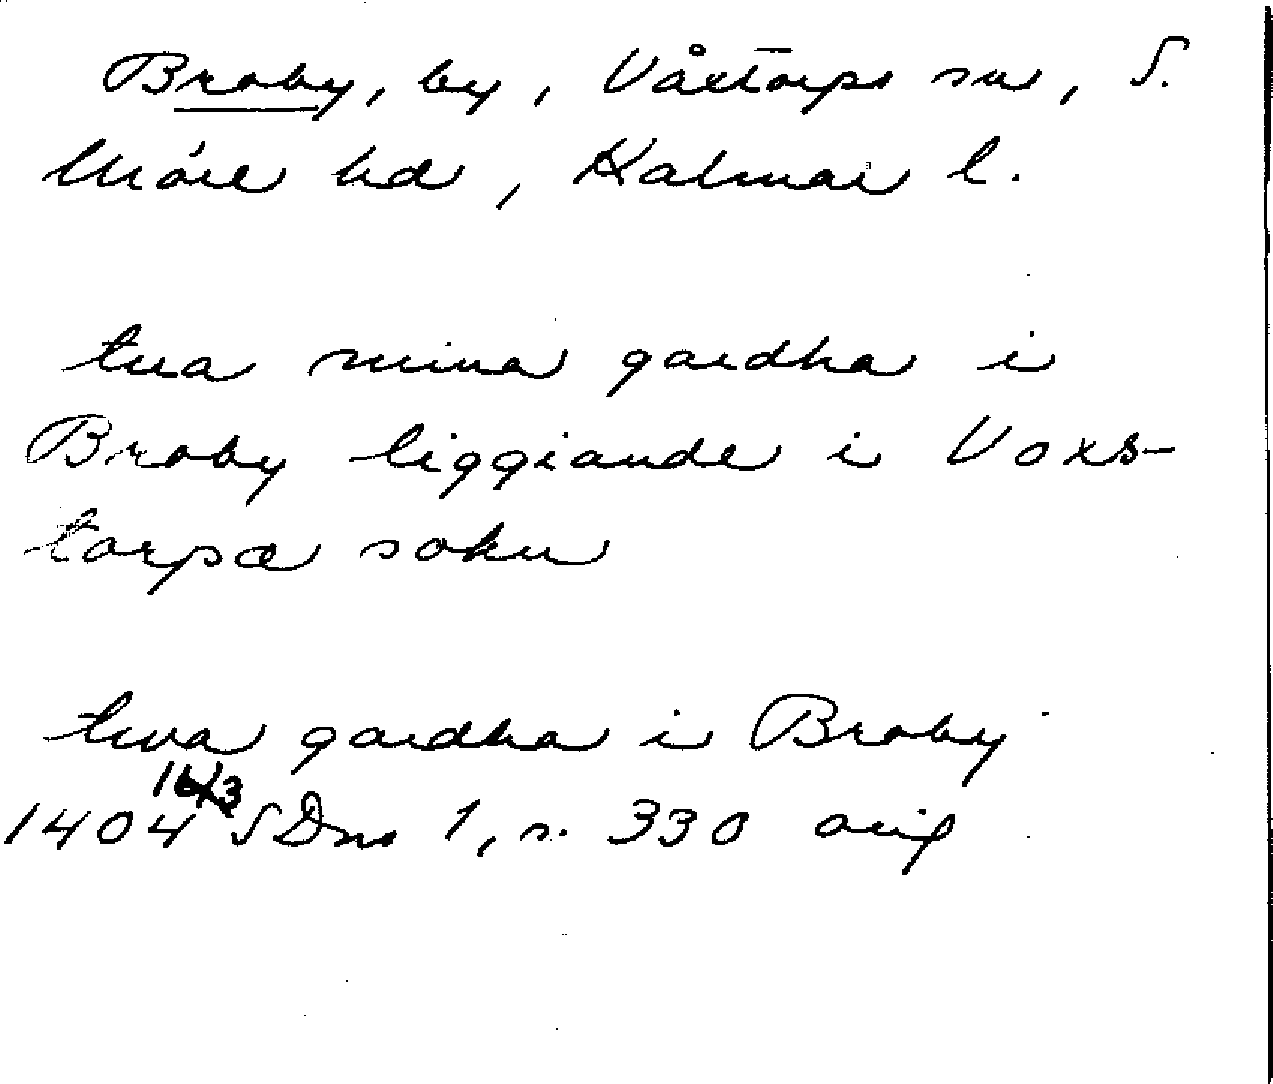 Broby, by, Växtorps sn, S.
Möre hd, Kalmar l.
tua mina gardha i
Broby liggiande i Voxs-
torpæ sokn
twa gardha i Broby
1404 16/3 SDns 1, s. 330 orig